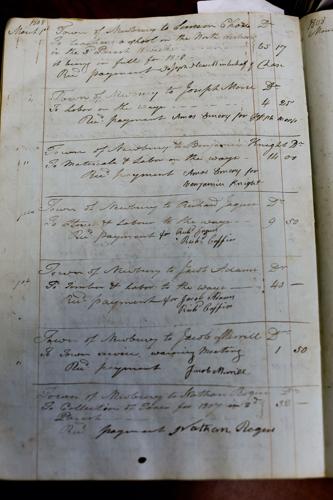 1808
March 1st Town of Newbury to Simeon Chase Dr
To teaching a school in the North School
in the 2d Parish 65 17
it being in full for 1808
Recd payment Chase
Town of Newbury to Joseph Morse Dr
To Labor on the ways 4 25
Recd payment Amos Emery for Joseph Morse
Town of Newbury to Benjamin Knight Dr
To Materials & Labor on the ways 14 00
Recd payment Amos Emery for
Benjamin Knight
Town of Newbury to Richard Jaques Dr
To Stone & Labour to the ways 9 50
Recd payment for Richd Jaques
Richd Coffin
Town of Newbury to Jacob Adams Dr
To Timber & Labor to the ways 40 —
Recd payment for Jacob Adams
Richd Coffin
Town of Newbury to Jacob Merrill Dr
To Town service, warning Meeting 1 50
Recd payment Jacob Merrill
Town of Newbury to Nathan Rogers Dr
To Collection of Taxes for 1807 in 2d 30 —
Parish
Recd payment Nathan Rogers